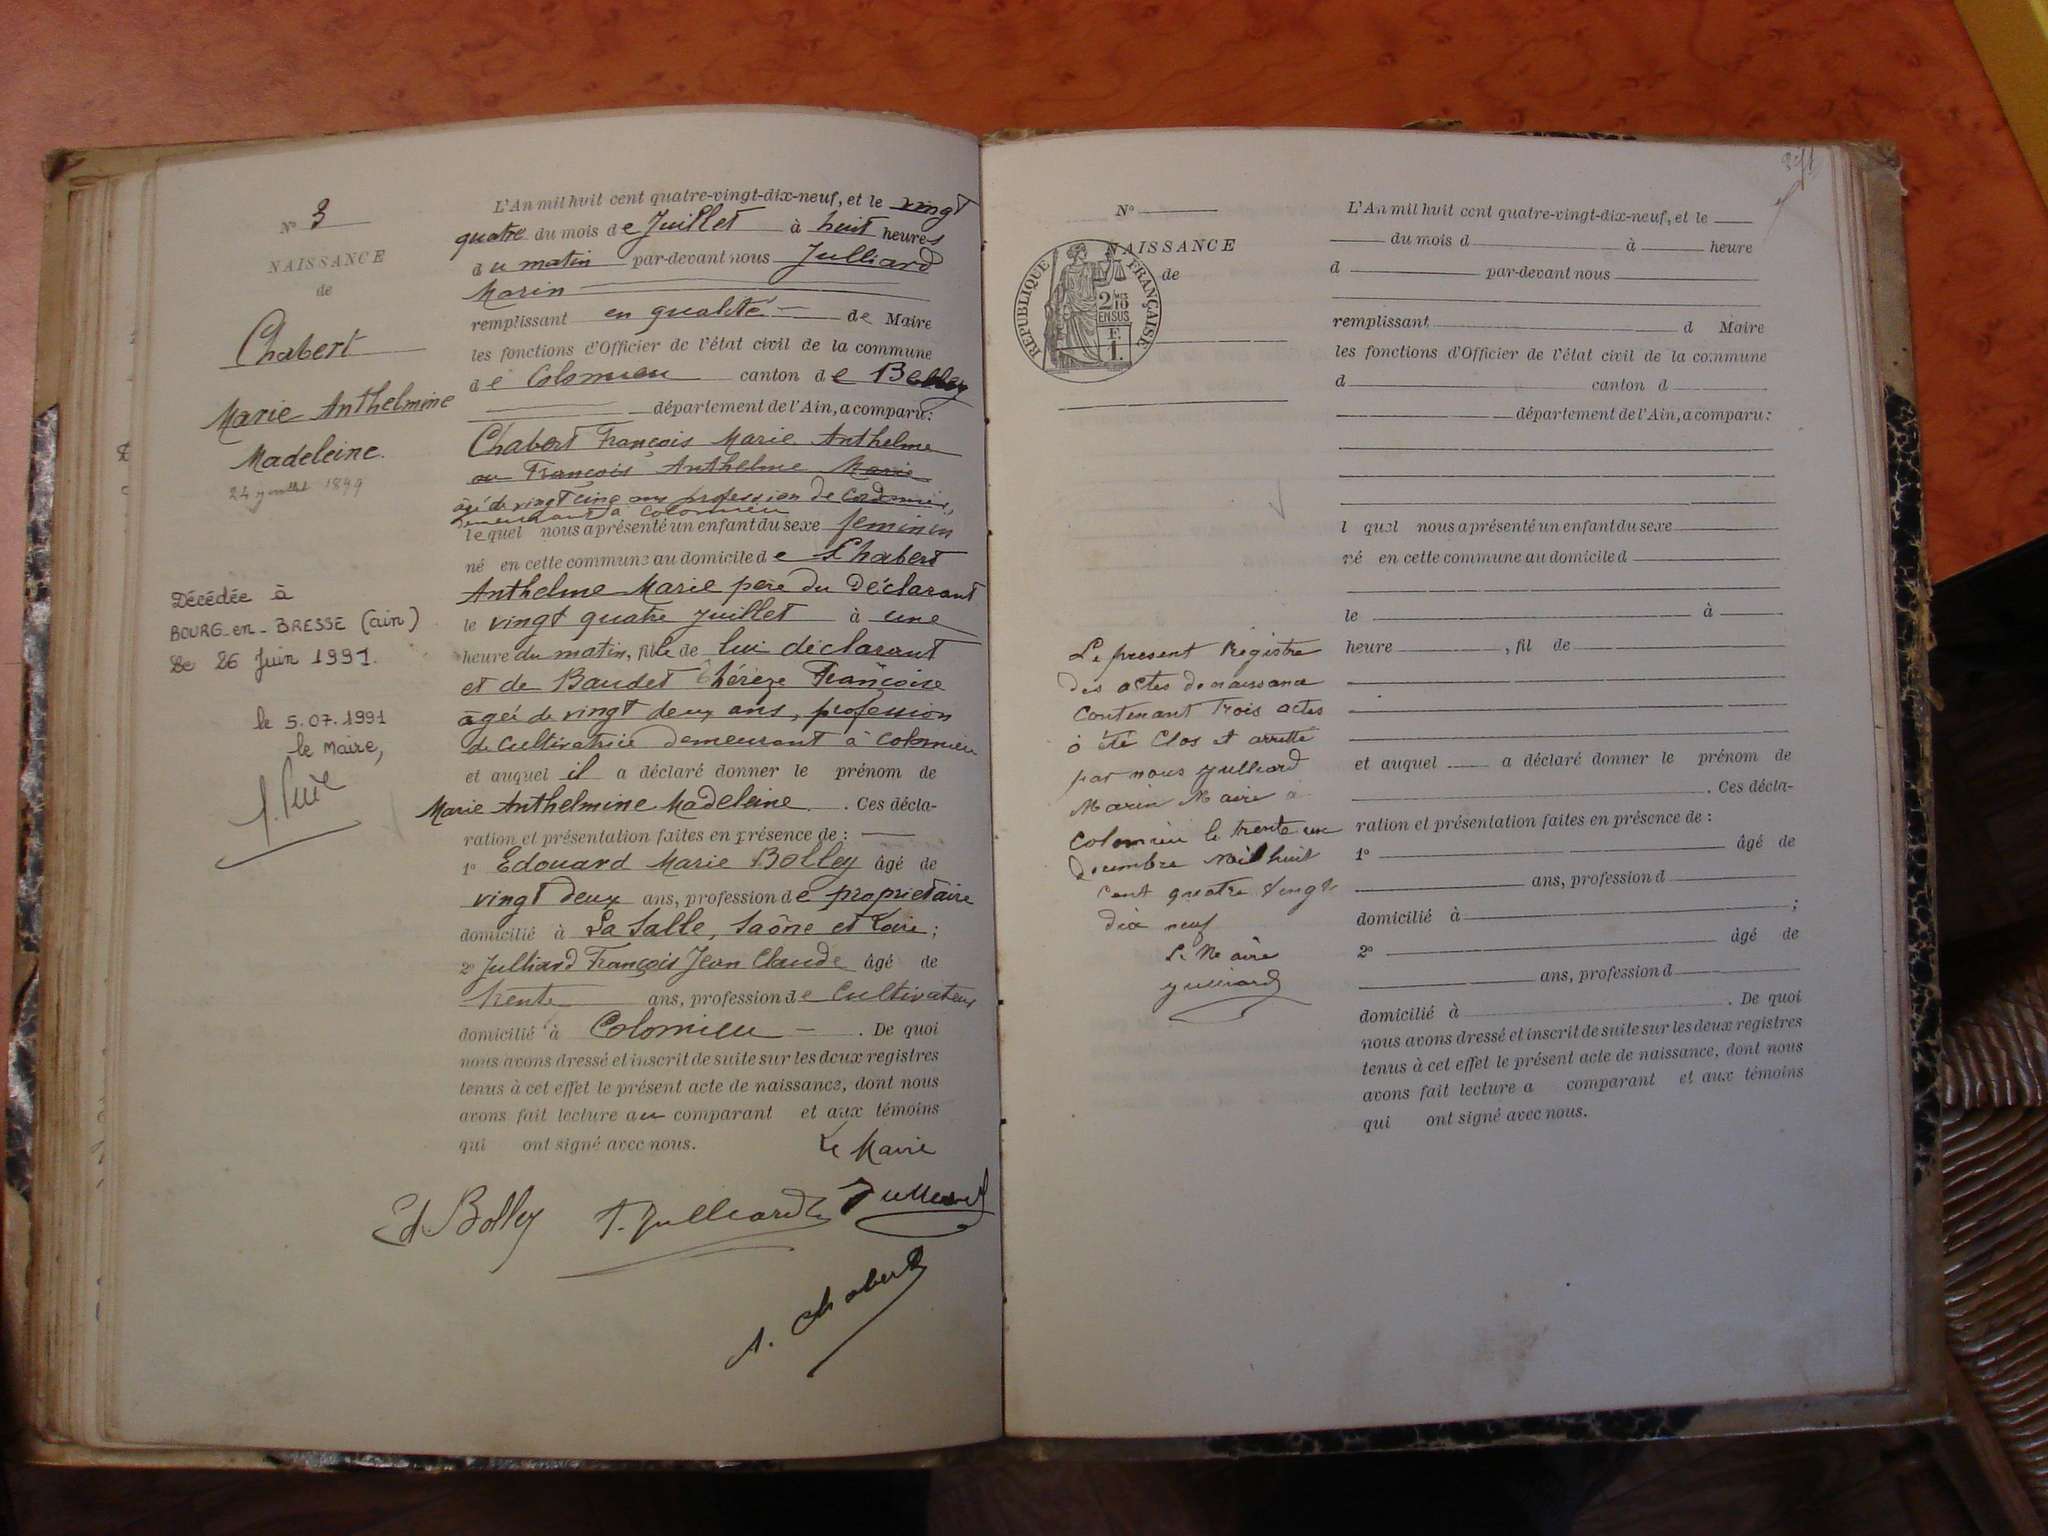 N° 3
NAISSANCE
de
Chabert
Marie Anthelmine
Madeleine.
24 juillet 1899
Décédée à
BOURG-en-BRESSE (ain)
Le 26 Juin 1991.
le 5.07.1991
le Maire,
L'An mil huit cent quatre-vingt-dix-neuf, et le vingt
quatre du mois de Juillet à huit heures
du matin par-devant nous Julliard
Marin
remplissant en qualité de Maire
les fonctions d'Officier de l'état civil de la commune
de Colomieu canton de Belley
département de l'Ain, a comparu:
Chabert François Marie Anthelme
ou François Anthelme Marie
âgé de vingt cinq ans profession de Cordonnier,
demeurant à Colomieu
lequel nous a présenté un enfant du sexe feminin
né en cette commune au domicile de Chabert
Anthelme Marie pere du Déclarant
le vingt quatre juillet à une
heure du matin, fille de lui déclarant
et de Baudet Thérèze Françoise
âgée de vingt deux ans, profession
de Cultivatrice demeurant à Colomieu
et auquel il a déclaré donner le prénom de
Marie Anthelmine Madeleine. Ces décla-
ration et présentation faites en présence de :
1° Edouard Marie Bolley âgé de
vingt deux ans, profession de propriétaire
domicilié à La Salle, Saône et Loire;
2° Julliard François Jean Claude âgé de
trente ans, profession de Cultivateur
domicilié à Colomieu. De quoi
nous avons dressé et inscrit de suite sur les deux registres
tenus à cet effet le présent acte de naissance, dont nous
avons fait lecture au comparant et aux témoins
qui ont signé avec nous.
Le Maire
Ed. Bolley F. Julliard Julliard
A. Chabert
N°
NAISSANCE
de
RÉPUBLIQUE FRANÇAISE
2 10MES
EN SUS
F.
1.
Le present Registre
des actes de naissance
Contenant Trois actes
à été Clos et arretté
par nous Julliard
Marin Maire à
Colomieu le trente un
decembre mil huit
cent quatre Vingt
dix neuf
Le Maire
Julliard
L'An mil huit cent quatre-vingt-dix-neuf, et le
du mois d à heure
d par-devant nous
remplissant d Maire
les fonctions d'Officier de l'état civil de la commune
d canton d
département de l'Ain, a comparu:
l quel nous a présenté un enfant du sexe
né en cette commune au domicile d
le à
heure , fil de
et auquel a déclaré donner le prénom de
. Ces décla-
ration et présentation faites en présence de :
1° âgé de
ans, profession d
domicilié à ;
2° âgé de
ans, profession d
domicilié à . De quoi
nous avons dressé et inscrit de suite sur les deux registres
tenus à cet effet le présent acte de naissance, dont nous
avons fait lecture a comparant et aux témoins
qui ont signé avec nous.